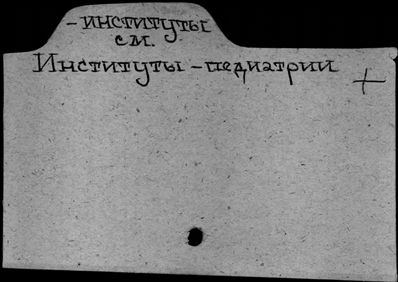 - институты
см.
Институты - педиатрии
+